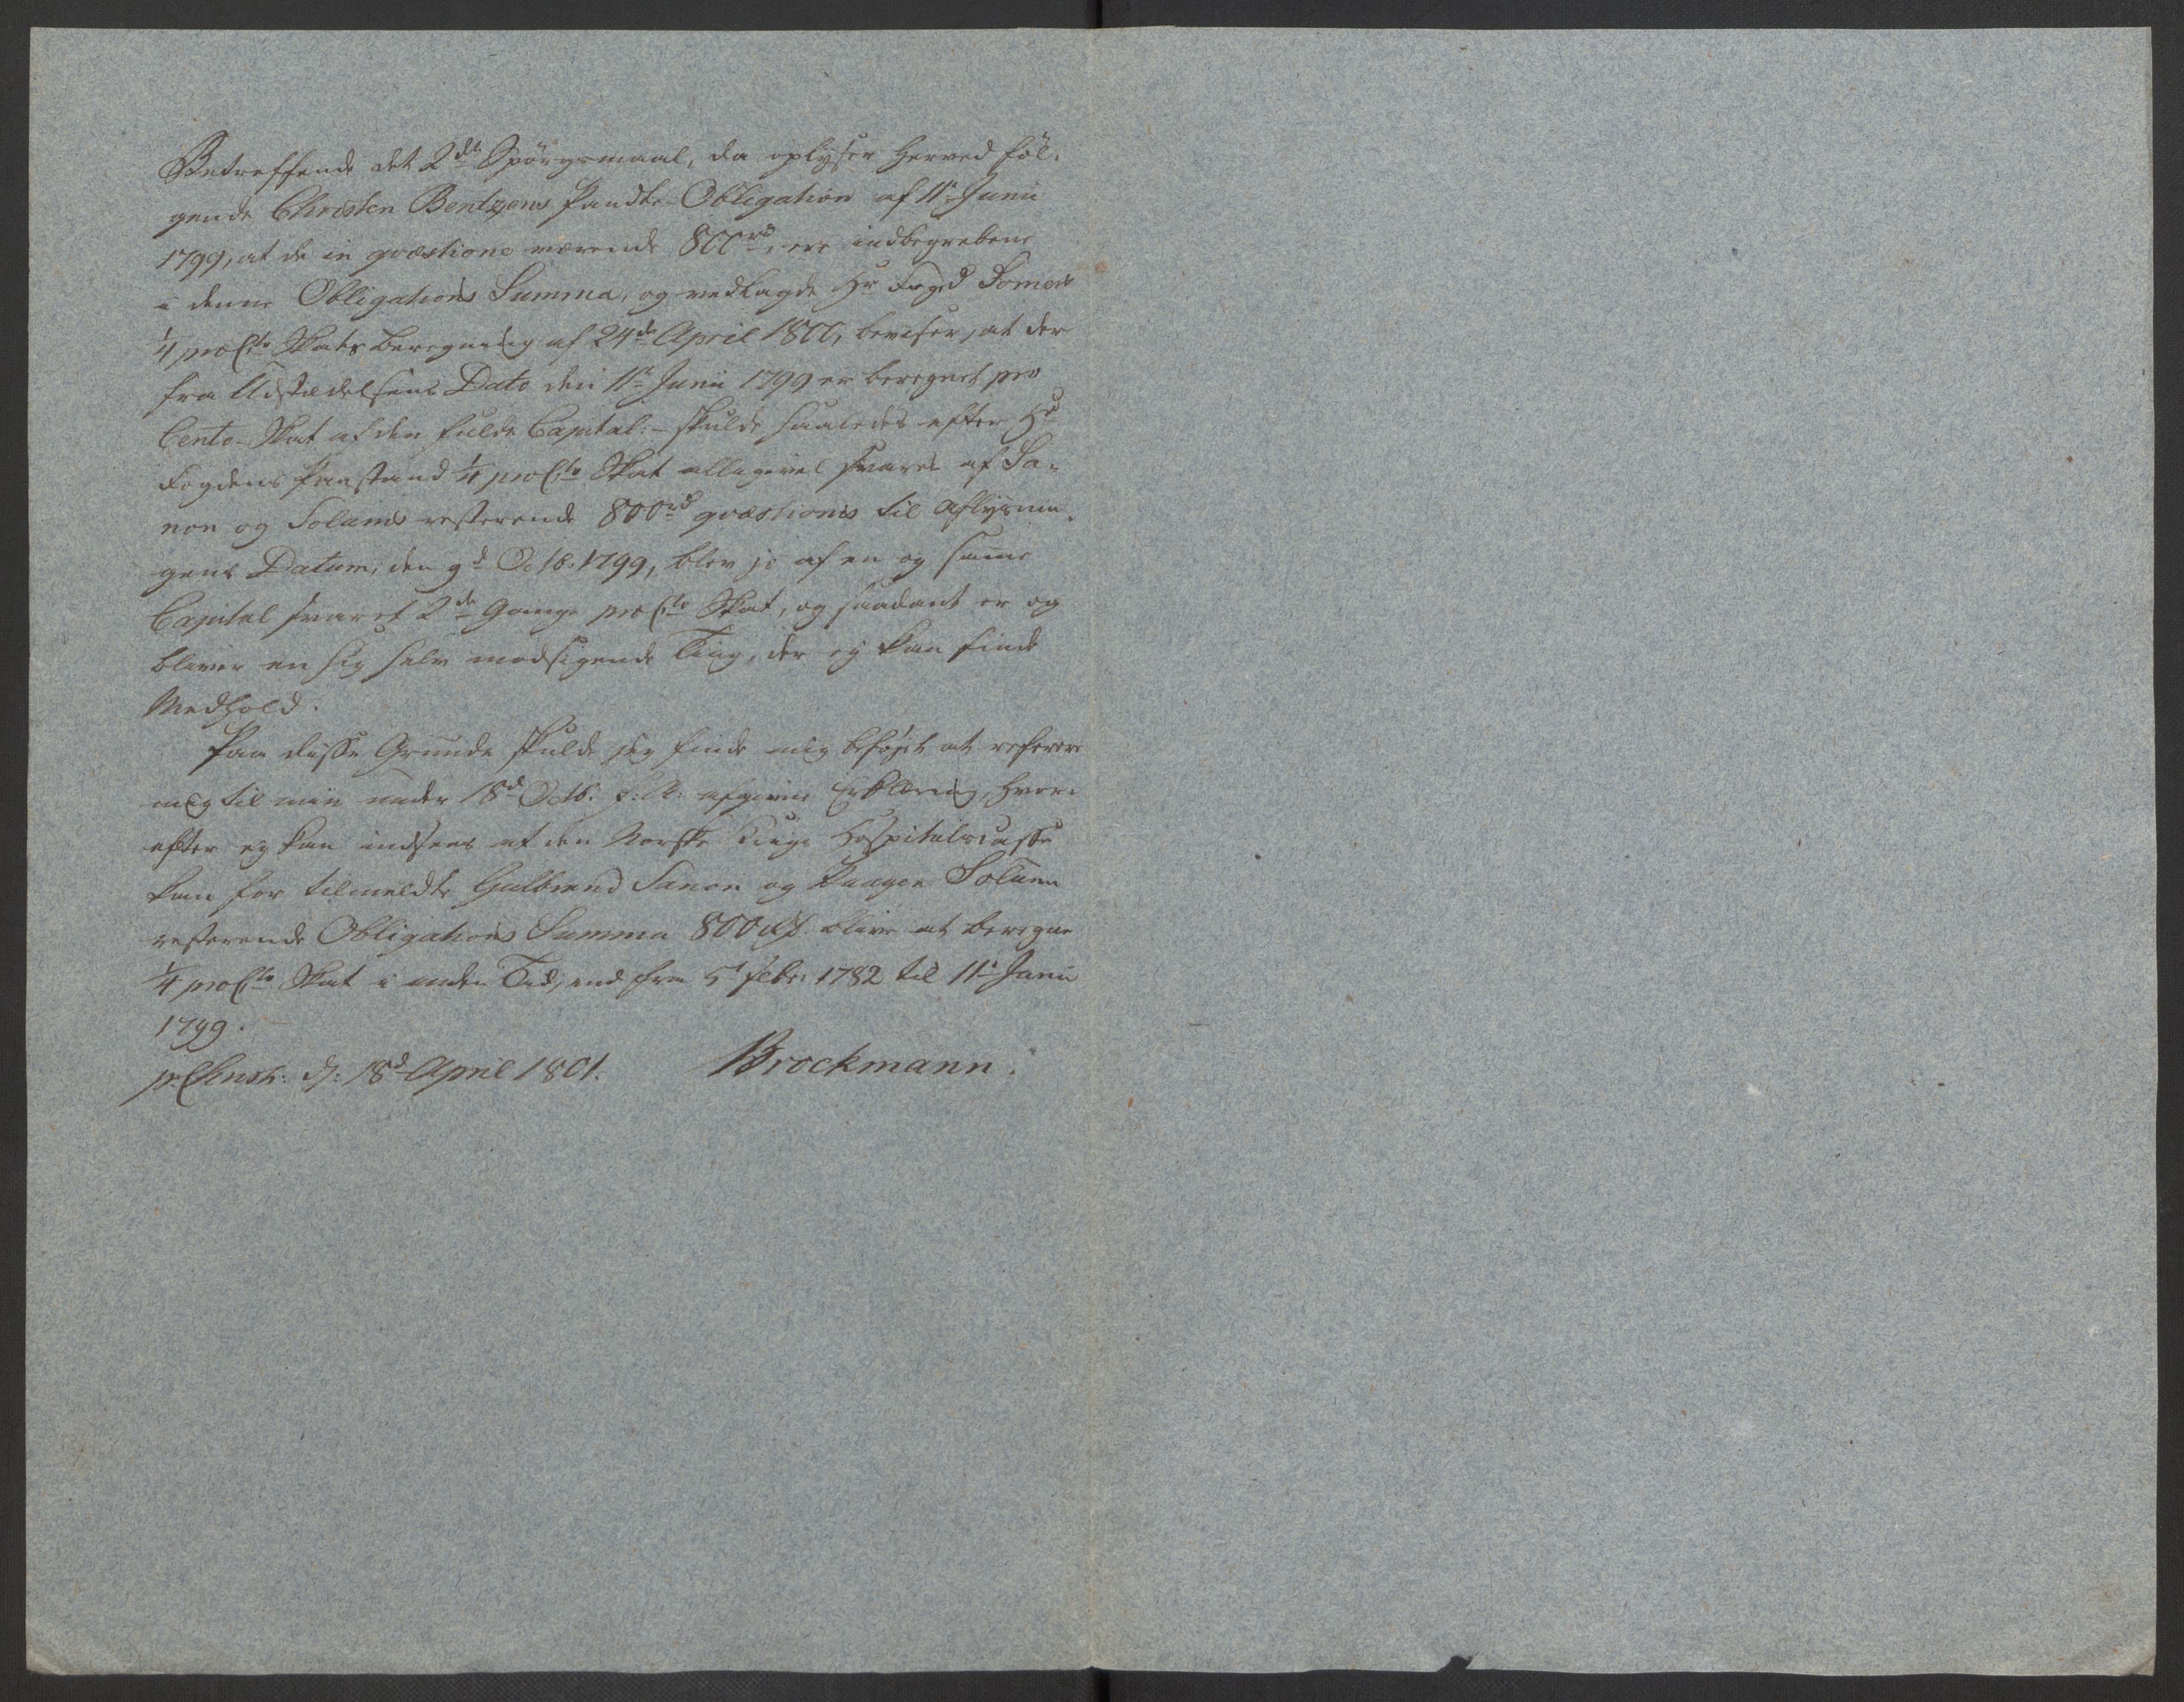 Betreffende det 2det Spörgsmaal, da oplyser herved föl-
gende Christen Bentzens Pandte-Obligation af 11te Junii
1799, at de in qvæstione værende 800rd, ere indbegrebene
i denne Obligations Summa, og vedlagde Hr Foged
1/4 proCto Skats beregning af 24de April 1800, beviser, at der
fra Udstædelsens Dato den 11te Junii 1799 er beregnet pro
Cento-Skat af den fulde Capital:- skulde saaledes efter Hr
Fogdens Paastand 1/4 proCto Skat alligevel svares af Sa-
non og Solums resterende 800rd qvæstionis til Aflysnin-
gens Datum, den 9d Octb. 1799, blev jo af en og samme
Capital svaret 2de Gange proCto Skat, og saadant er og
bliver en sig selv modsigende Ting, der ej kan finde
Medhold.
Paa disse Grunde skulde jeg finde mig beföjet at referere
mig til min under 18d Octb. f: A: afgivne Erklæring, hvor-
efter ej kan indsees at den Norske Krigs Hospitalscasse
kan for tilmeldte Gulbrand Sanon og Haagen Solum
resterende Obligations Summa 800 rd blive at beregne
1/4 proCto Skat i anden Tid, end fra 5t Febr. 1782 til 11te Junii
1799.
d: 18d April 1801. Brockmann.